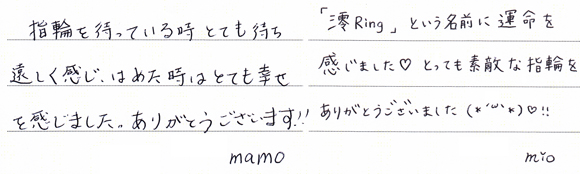 指輪を待っている時とても待ち
遠しく感じ、はめた時はとても幸せ
を感じました。ありがとうございます!!
mamo
「澪Ring」という名前に運命を
感じました♡ とっても素敵な指輪を
ありがとうございました(*´ω`*)♡!!
mio